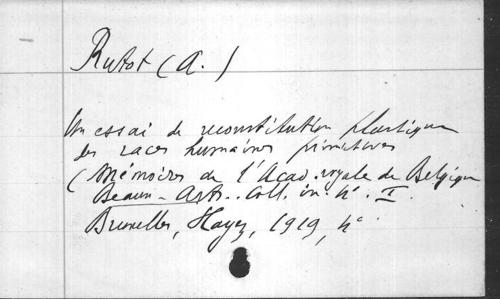 Rutot (A.)
Un essai de reconstitution plastique
des races humaines primitives
(Mémoires de l'Acad. royale de Belgique
Beaux-Arts. Coll. in-4°. I.
Bruxelles, Hayez, 1919, 4°